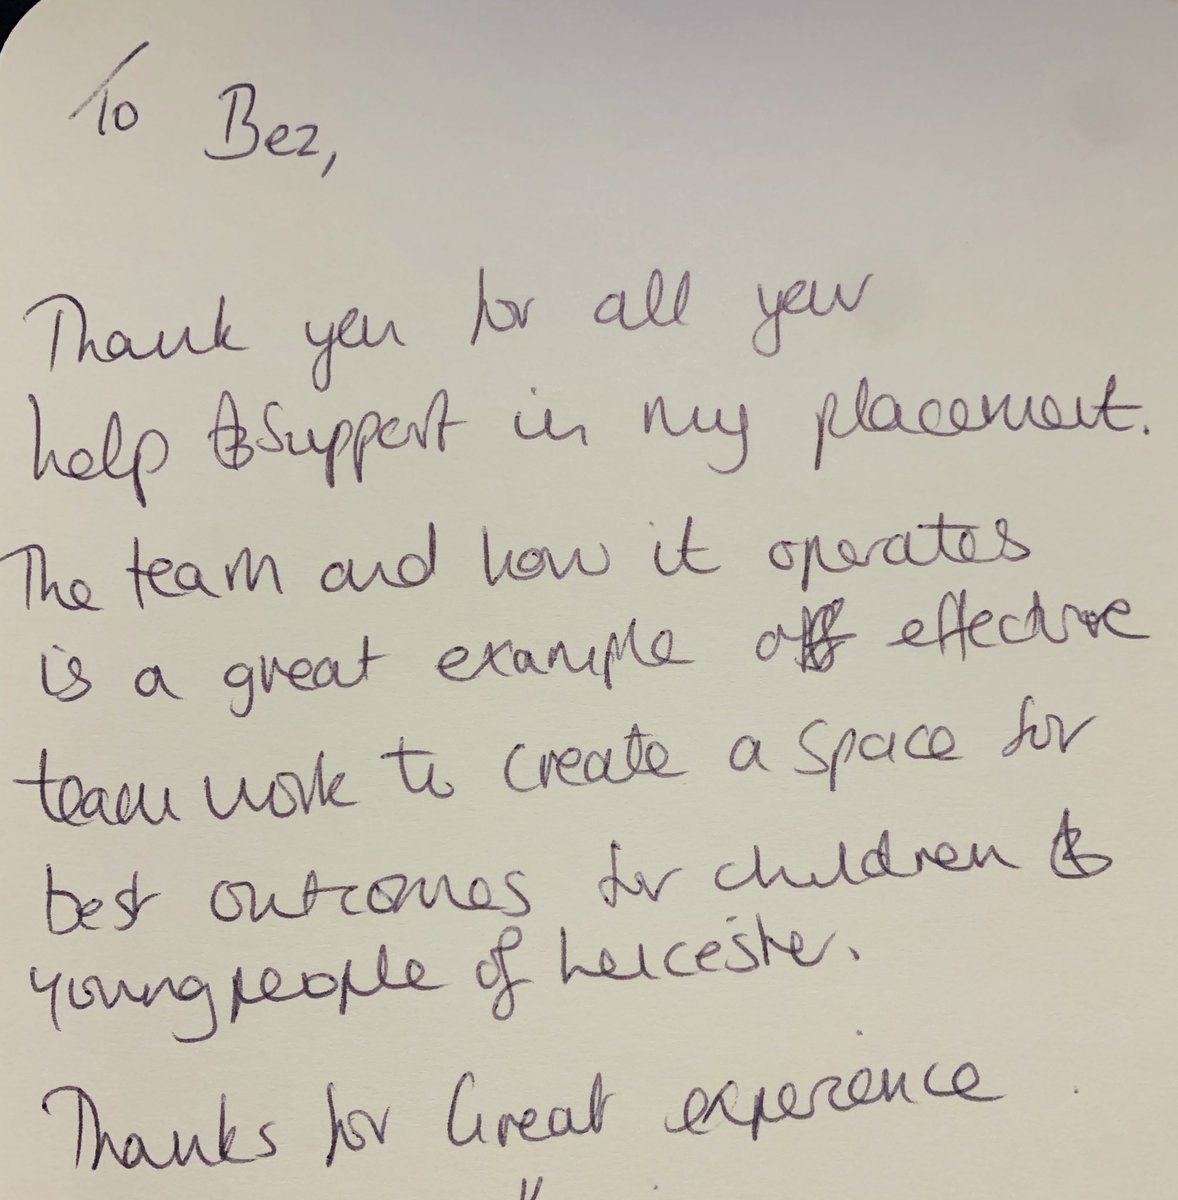 To Bez,
Thank you for all your
help & Support in my placement.
The team and how it operates
is a great example of effective
team work to create a space for
best outcomes for children &
young people of Leicester.
Thanks for Great experience